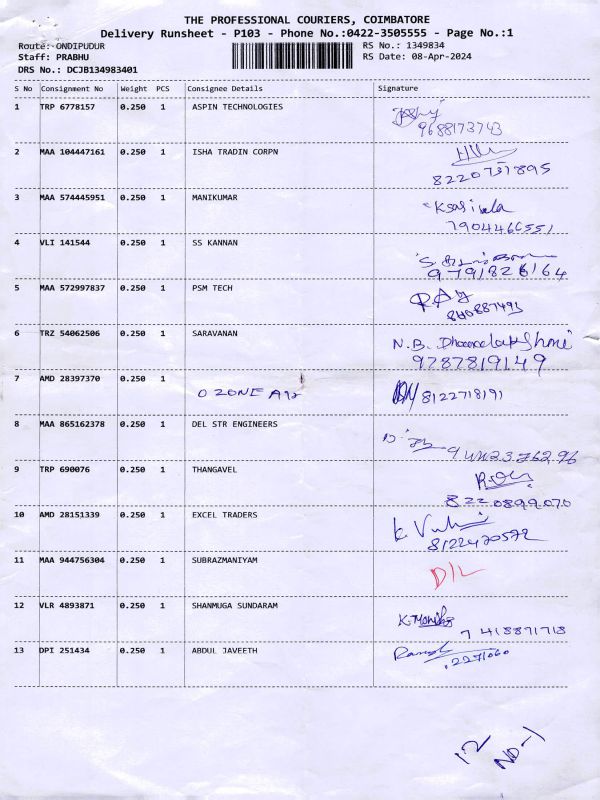 THE PROFESSIONAL COURIERS, COIMBATORE
Delivery Runsheet - P103 - Phone No.:0422-3505555 - Page No.:1
Route: ONDIPUDUR RS No.: 1349834
Staff: PRABHU RS Date: 08-Apr-2024
DRS No.: DCJB134983401
S No Consignment No Weight PCS Consignee Details Signature
1 TRP 6778157 0.250 1 ASPIN TECHNOLOGIES
9688173743
2 MAA 104447161 0.250 1 ISHA TRADIN CORPN
8220731895
3 MAA 574445951 0.250 1 MANIKUMAR
7904466551
4 VLI 141544 0.250 1 SS KANNAN
9791826164
5 MAA 572997837 0.250 1 PSM TECH
6 TRZ 54062506 0.250 1 SARAVANAN N.B.
9787819149
7 AMD 28397370 0.250 1
OZONE 8122718191
8 MAA 865162378 0.250 1 DEL STR ENGINEERS
9 TRP 690076 0.250 1 THANGAVEL
8220899070
10 AMD 28151339 0.250 1 EXCEL TRADERS
8122470572
11 MAA 944756304 0.250 1 SUBRAZMANIYAM D/L
12 VLR 4893871 0.250 1 SHANMUGA SUNDARAM
7418871718
13 DPI 251434 0.250 1 ABDUL JAVEETH
12
ND-1